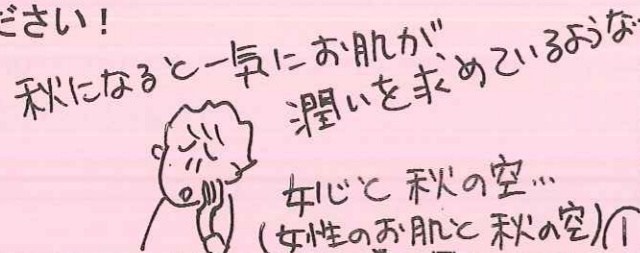 ださい！
秋になると一気にお肌が
潤いを求めているような
女心と秋の空…
(女性のお肌と秋の空)①